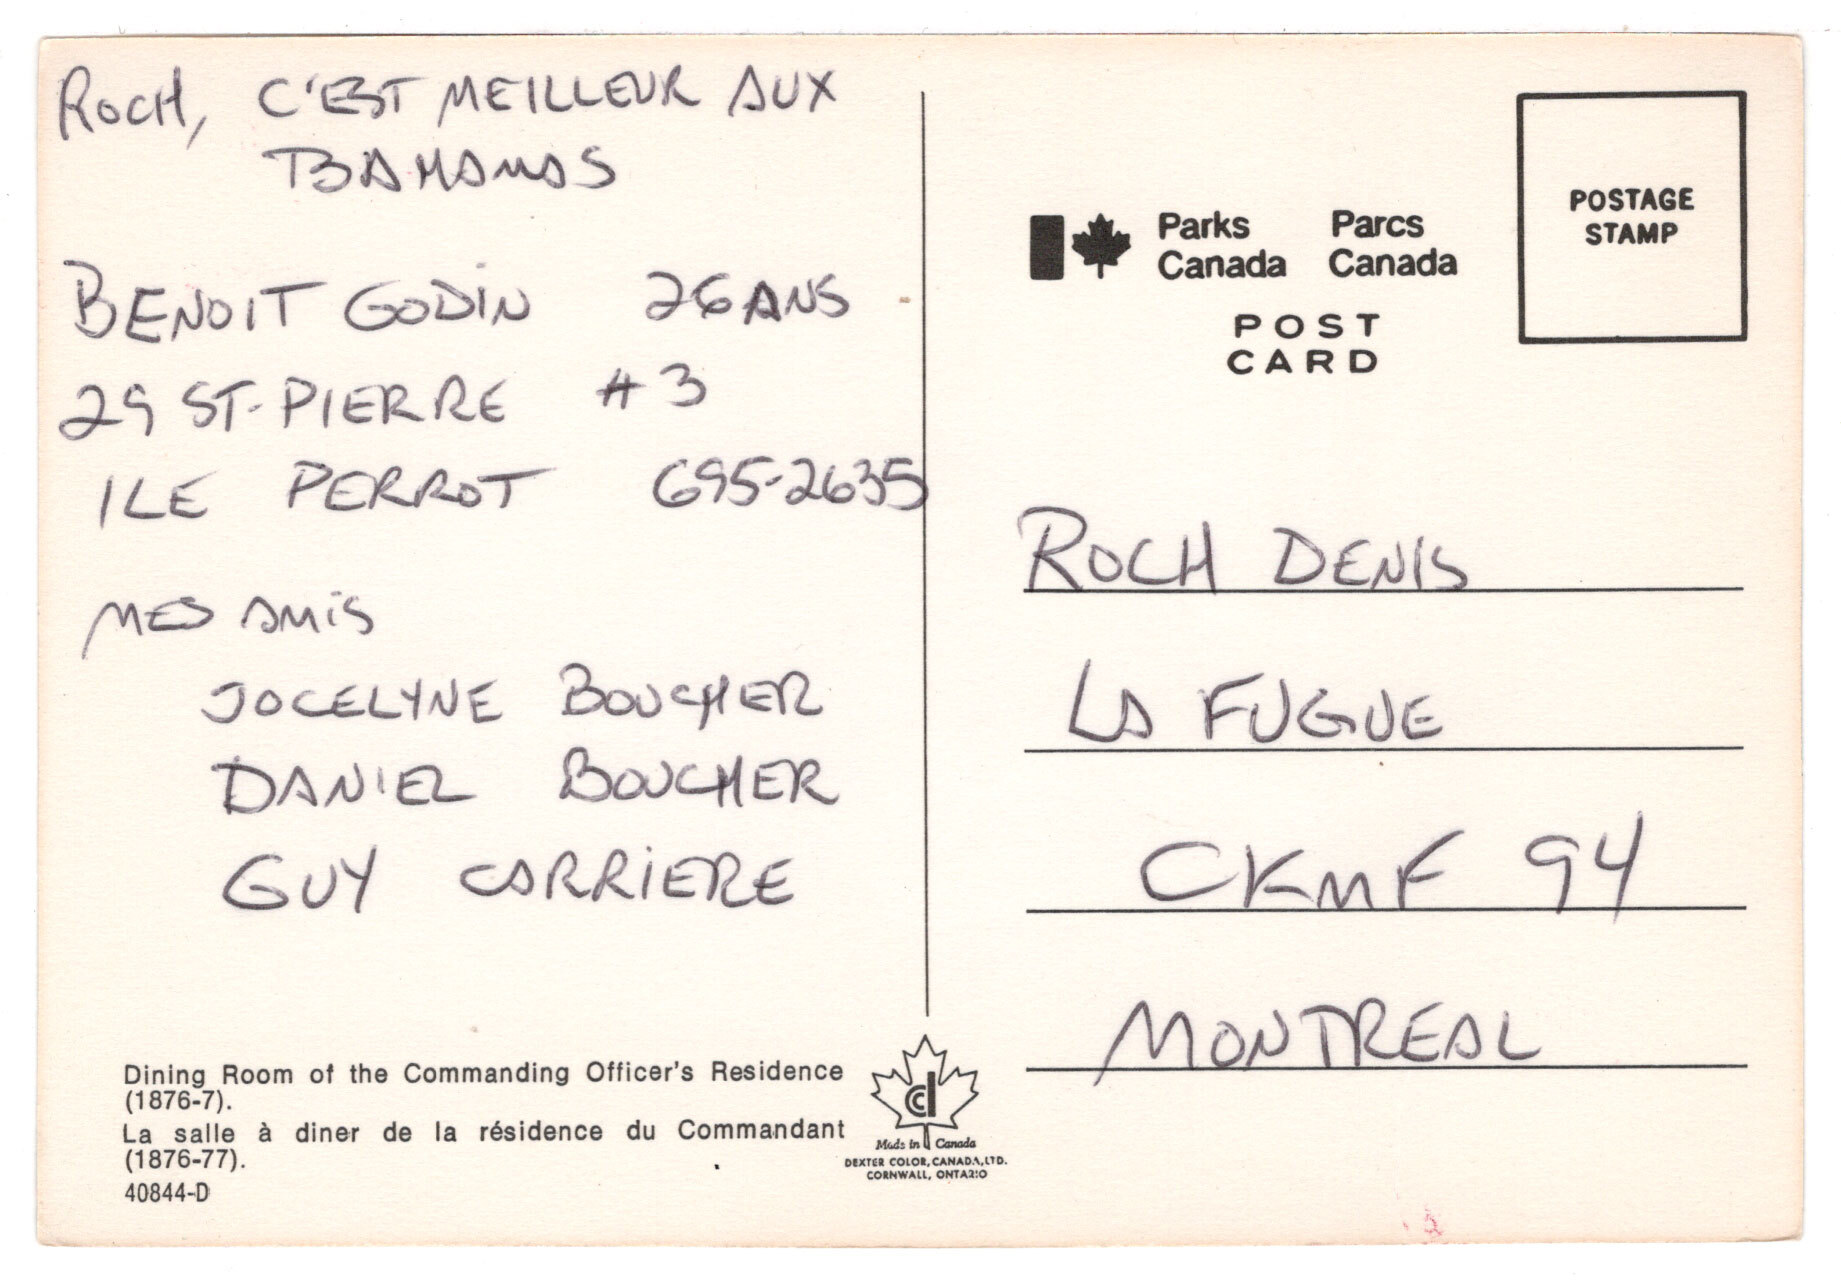 ROCH, C'EST MEILLEUR AUX
BAHAMAS
BENOIT GODIN 26 ANS
29 ST-PIERRE #3
ILE PERROT 695-2635
MES AMIS
JOCELYNE BOUCHER
DANIEL BOUCHER
GUY CARRIERE
Dining Room of the Commanding Officer's Residence
(1876-7).
La salle à diner de la résidence du Commandant
(1876-77).
40844-D
cd
Made in Canada
DEXTER COLOR, CANADA, LTD.
CORNWALL, ONTARIO
Parks Canada
Parcs Canada
POST
CARD
POSTAGE
STAMP
ROCH DENIS
LA FUGUE
CKMF 94
MONTREAL